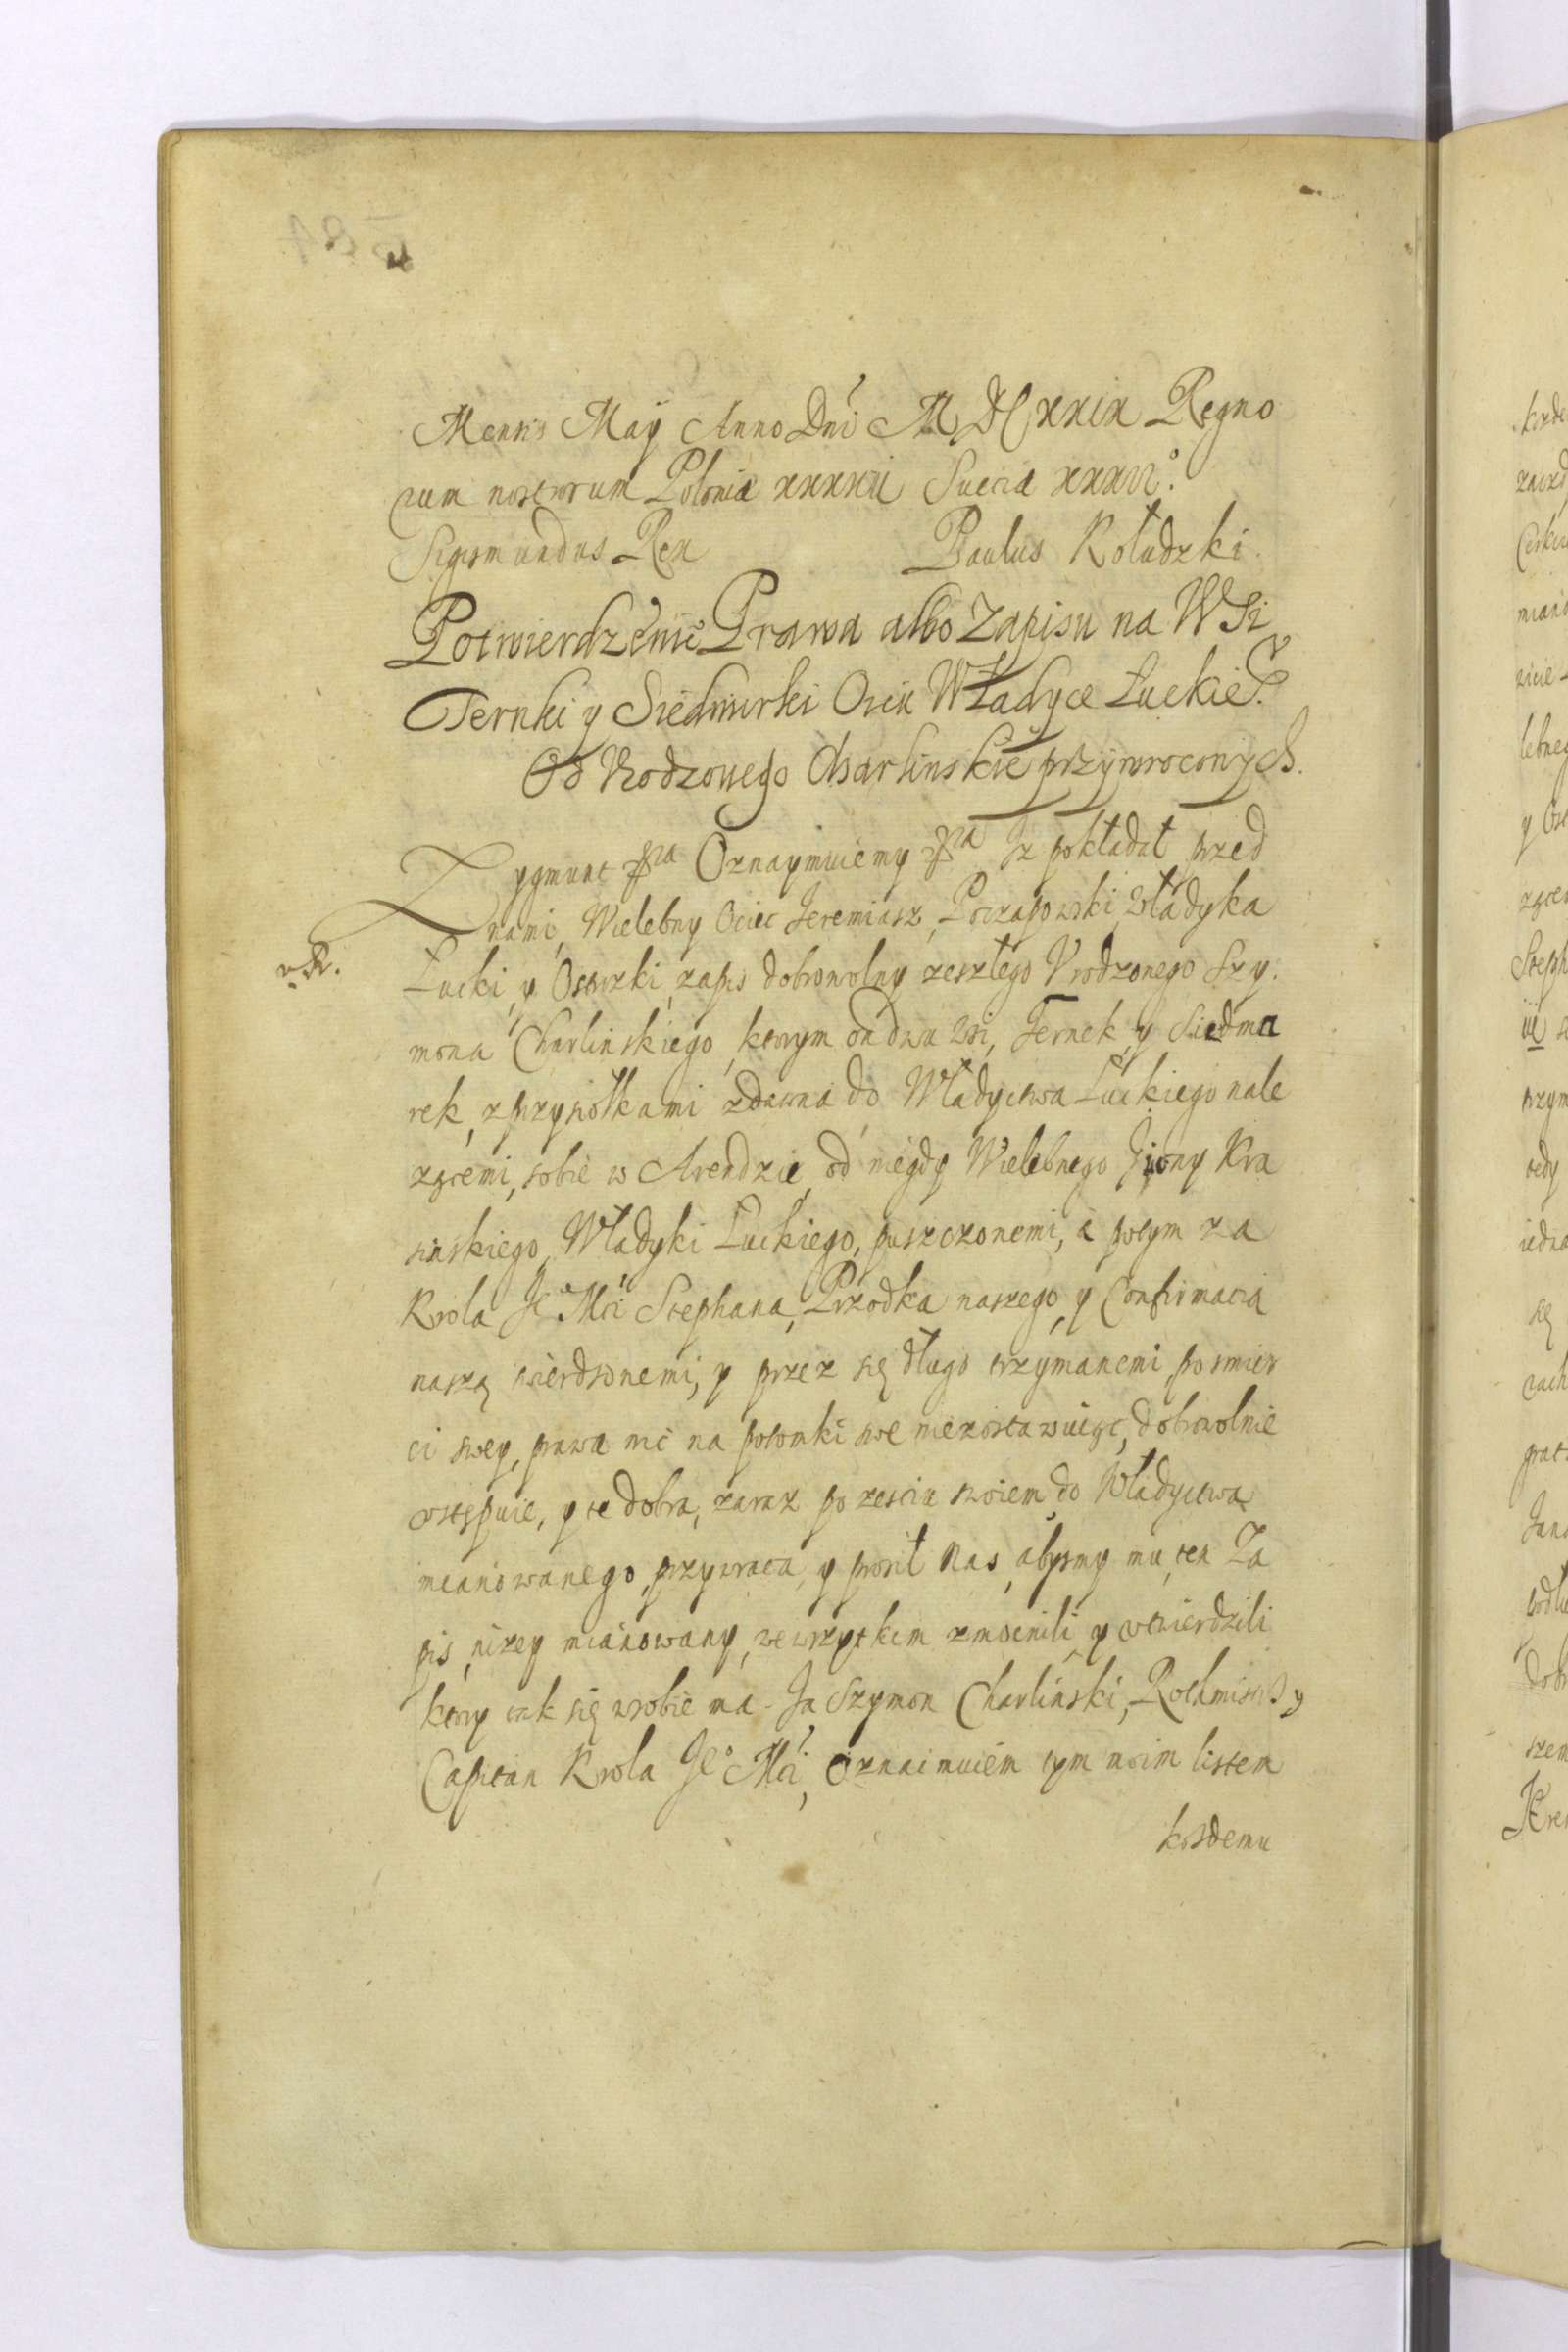 Mensis Maÿ Anno Dni MDCxxix Regno
rum nostrorum Poloniæ xxxxii Sueciæ xxxvi°.
Sigismundus Rex Paulus Kołudzki.
Potwierdzenie Prawa albo Zapisu na Wsi
Ternki y Siedmirki Oycu Władyce Łuckie°
Od Urodzonego Charlinskie° przywroconych.
Zygmunt &ca Oznaymuiemy &ca Iz pokładał przed
nami, Wielebny Ociec Jeremiasz, Poczapowski, Władyka
v. R.
Łucki, y Ostrozki, zapis dobrowolny zeszłego Vrodzonego Szy.
mona Charlinskiego, ktorym on dwu wsi, Ternek, y Siedma
rek, z przysiołkami zdawna do Władyctwa Łuckiego nale
zącemi, sobie w Arendzie, od niegdy Wielebnego Jony Kra
sinskiego, Władyki Łuckiego, puszczonemi, a potym za
Krola Je° Mci Stephana, Przodka naszego, y Confirmacią
naszą twierdzonemi, y przez się długo trzymanemi, po smier
ci swey, prawa nic na potomki swe niezostawuiąc, dobrowolnie
ustępuie, y te dobra, zaraz po zesciu swoiem, do Władyctwa
mianowanego, przywraca, y prosił nas, abysmy mu, ten Za
pis, nizey mianowany, we wszytkim zmocnili y utwierdzili
ktory tak się w sobie ma. Ja Szymon Charlinski, Rothmistrz y
Capitan Krola Je° Mci, oznaimuiem tym moim listem
kozdemu